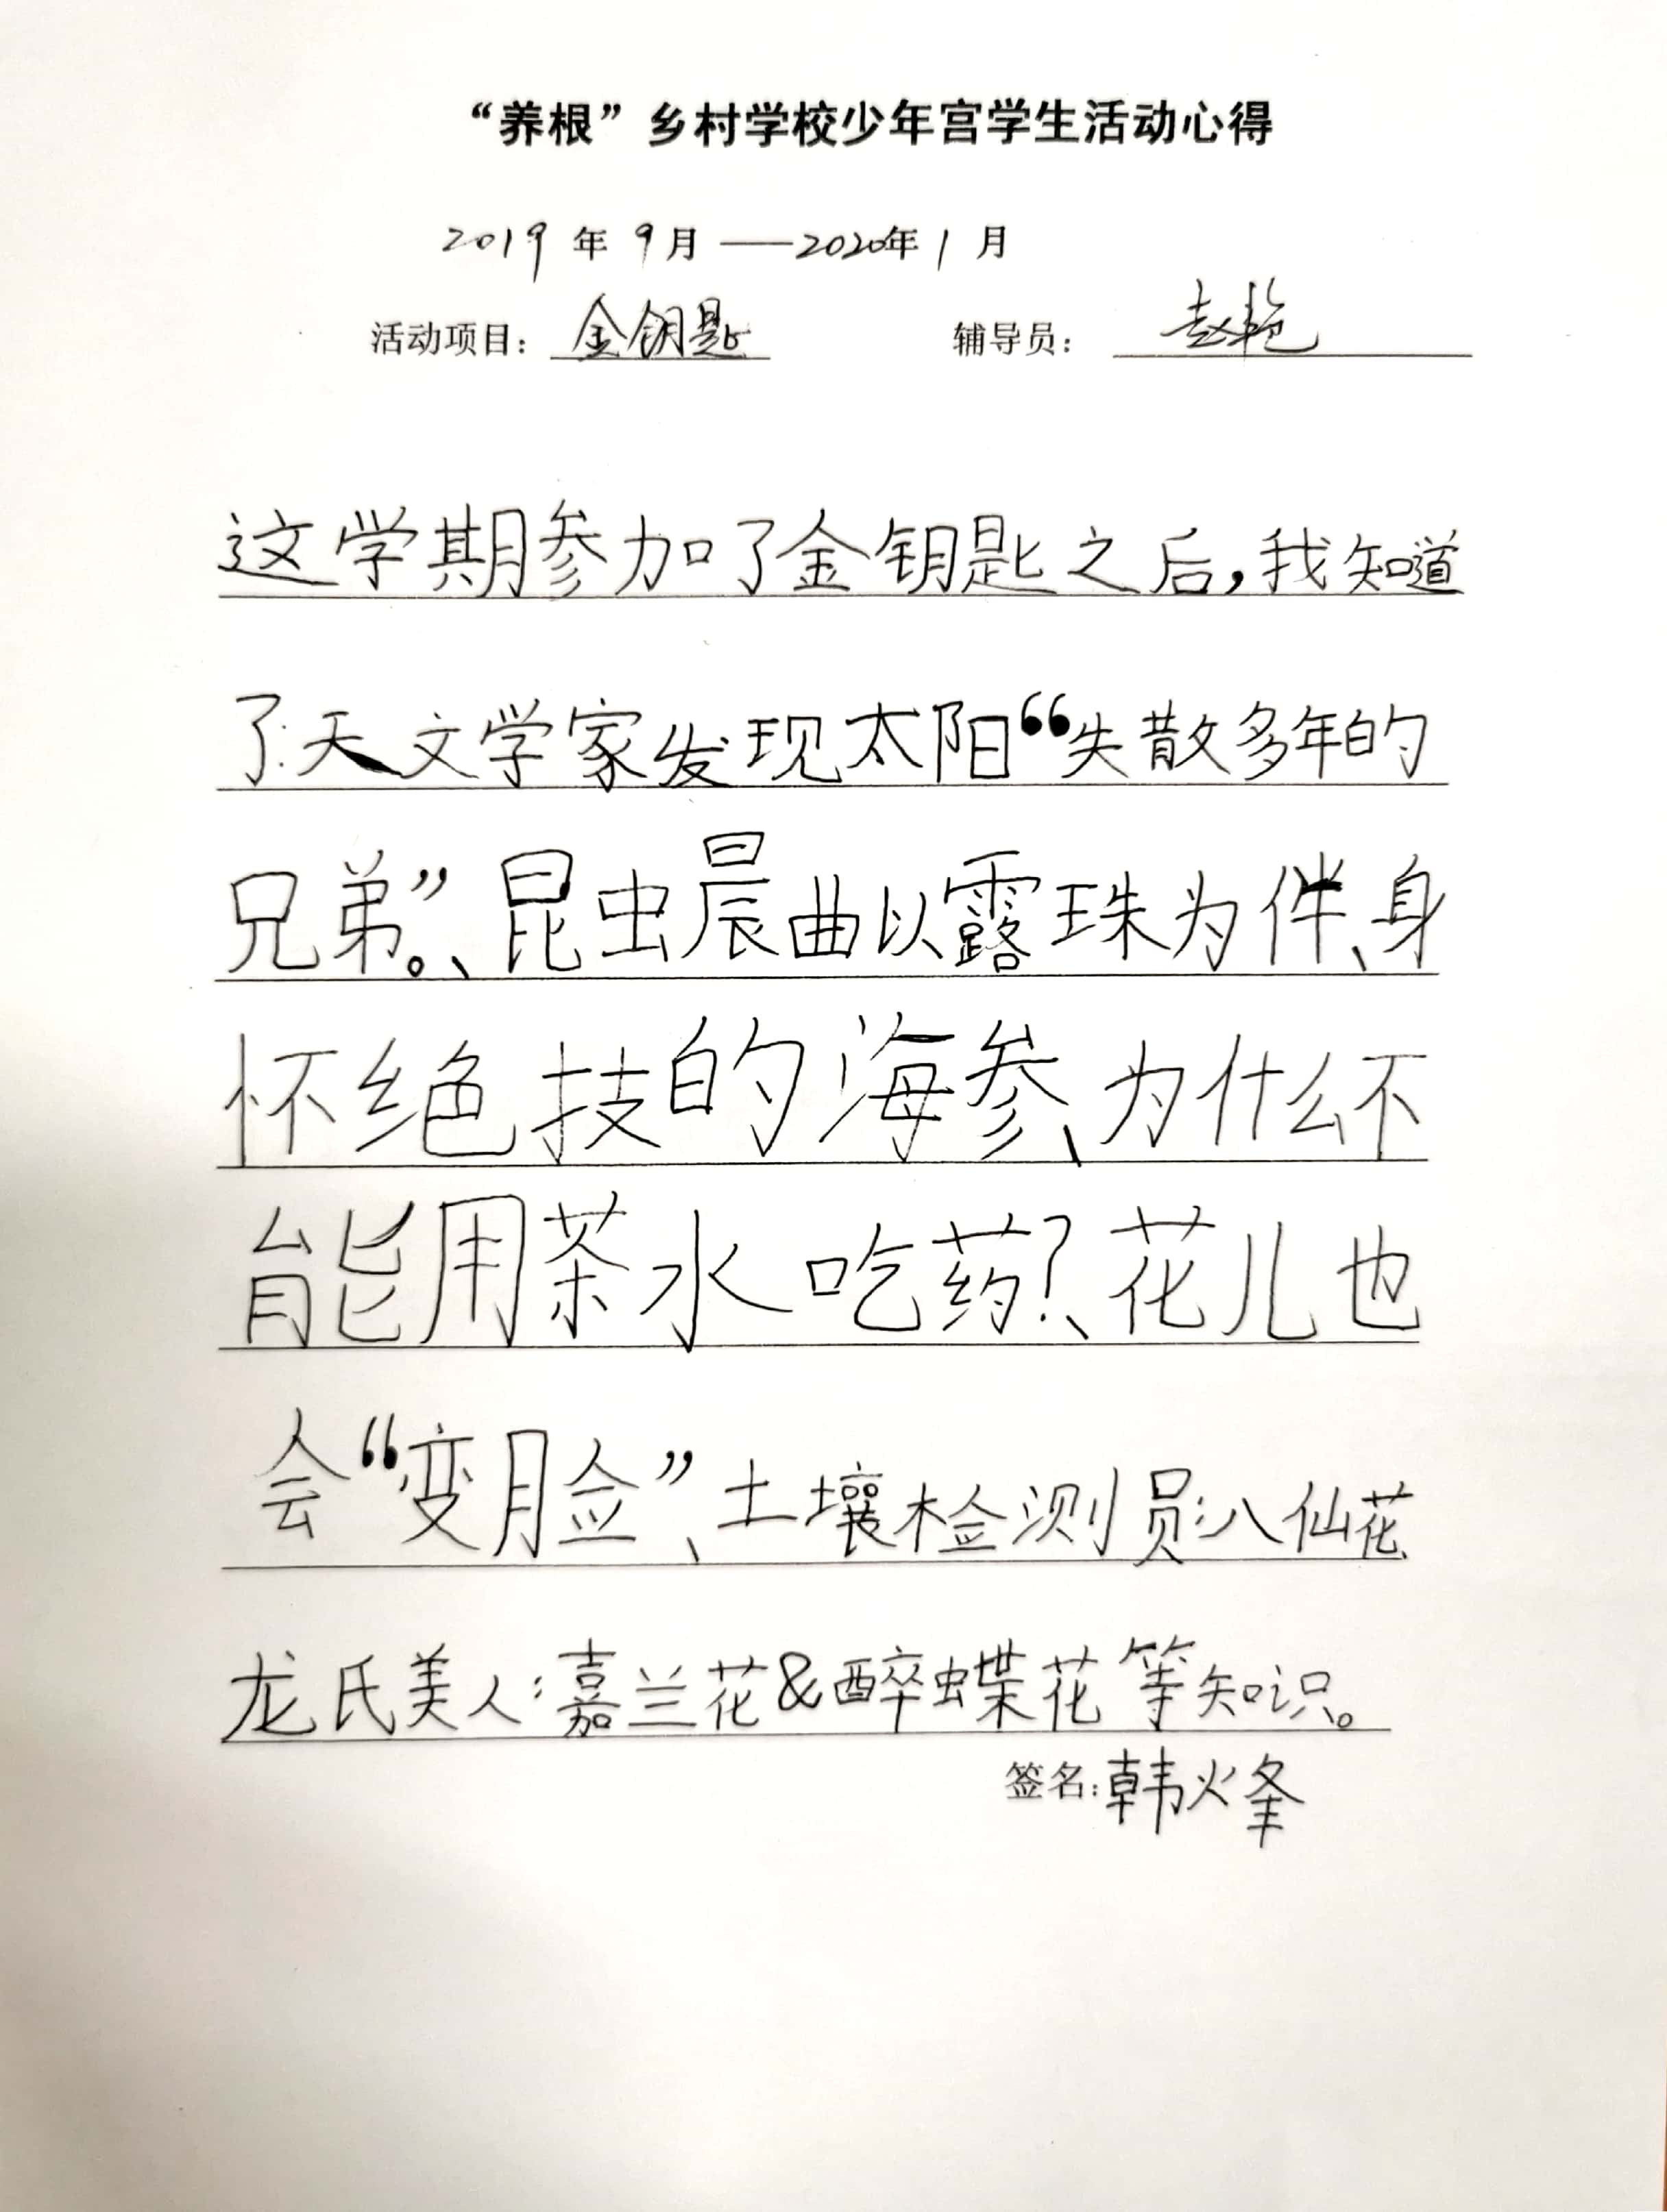 “养根”乡村学校少年宫学生活动心得
2019年9月——2020年1月
活动项目：金钥匙 辅导员：赵艳
这学期参加了金钥匙之后,我知道
了:天文学家发现太阳“失散多年的
兄弟。”、昆虫晨曲以露珠为伴、身
怀绝技的海参、为什么不
能用茶水吃药?、花儿也
会“变脸”、土壤检测员:八仙花、
龙氏美人:嘉兰花&醉蝶花等知识。
签名:韩火锋